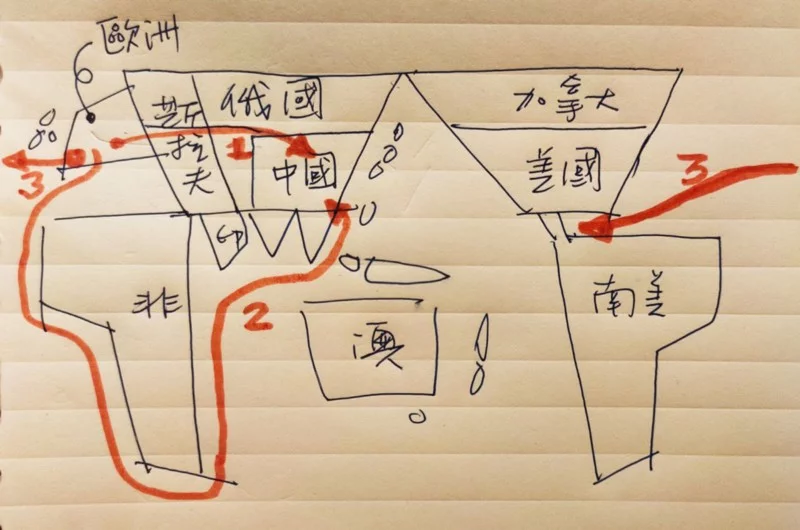 歐洲
斯拉夫
俄國
加拿大
1
中國
美國
3
3
印
非
2
澳
南美